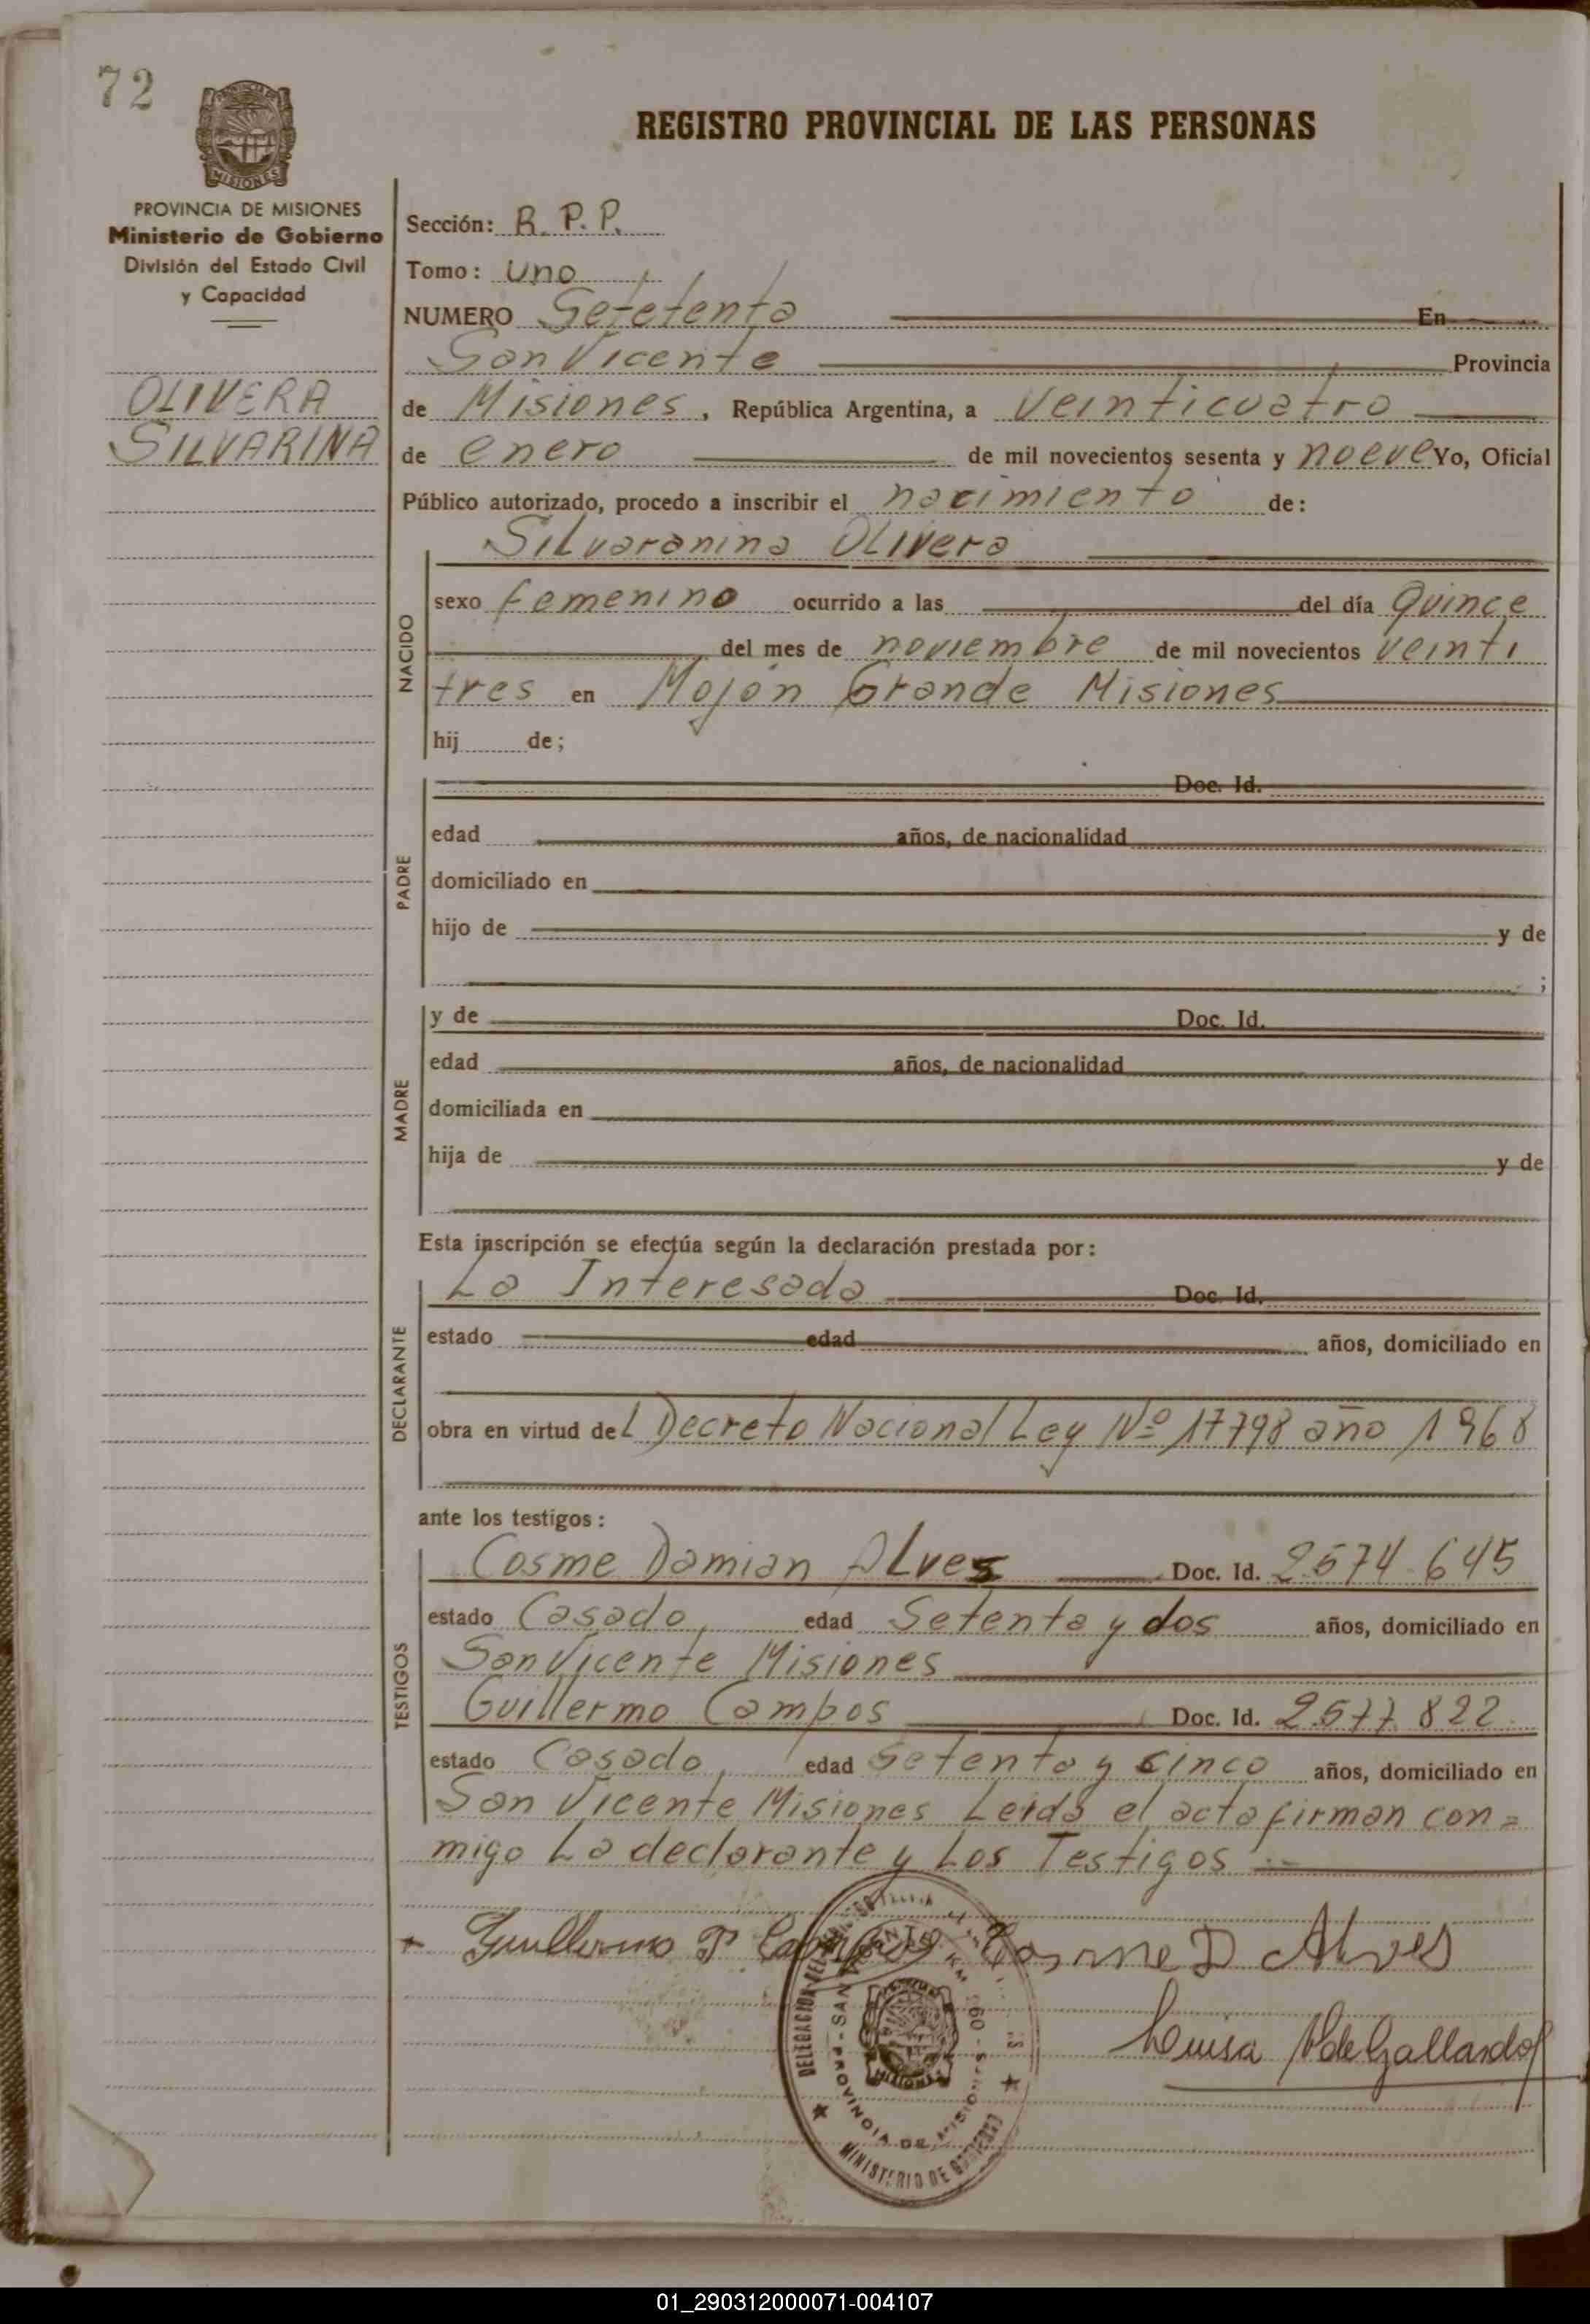 72
REGISTRO PROVINCIAL DE LAS PERSONAS
PROVINCIA DE MISIONES
Ministerio de Gobierno
División del Estado Civil
y Capacidad
OLIVERA
SILVARINA
Sección: R. P. P.
Tomo: Uno
NUMERO Setetenta En
San Vicente Provincia
de Misiones, República Argentina, a Veinticuatro
de enero de mil novecientos sesenta y nueve Yo, Oficial
Público autorizado, procedo a inscribir el nacimiento de:
Silvaranina Olivera
NACIDO
sexo femenino ocurrido a las del día Quince
del mes de noviembre de mil novecientos Veinti
tres en Mojón Grande Misiones
hij de;
PADRE
Doc. Id.
edad años, de nacionalidad
domiciliado en
hijo de y de
;
MADRE
y de Doc. Id.
edad años, de nacionalidad
domiciliada en
hija de y de
Esta inscripción se efectúa según la declaración prestada por:
DECLARANTE
La Interesada Doc. Id.
estado edad años, domiciliado en
obra en virtud del Decreto Nacional Ley Nº 17798 año 1968
ante los testigos:
TESTIGOS
Cosme Damian Alves Doc. Id. 2574.645
estado Casado, edad Setenta y dos años, domiciliado en
San Vicente Misiones
Guillermo Campos Doc. Id. 2.577.822
estado Casado, edad Setenta y cinco años, domiciliado en
San Vicente Misiones Leida el acta firman con=
migo La declarante y Los Testigos
Guillermo Campos Cosme D Alves
Luisa de Gallardo
DELEGACION
SAN VICENTE
PROVINCIA DE MISIONES
MINISTERIO DE GOBIERNO
MISIONES
01_290312000071-004107